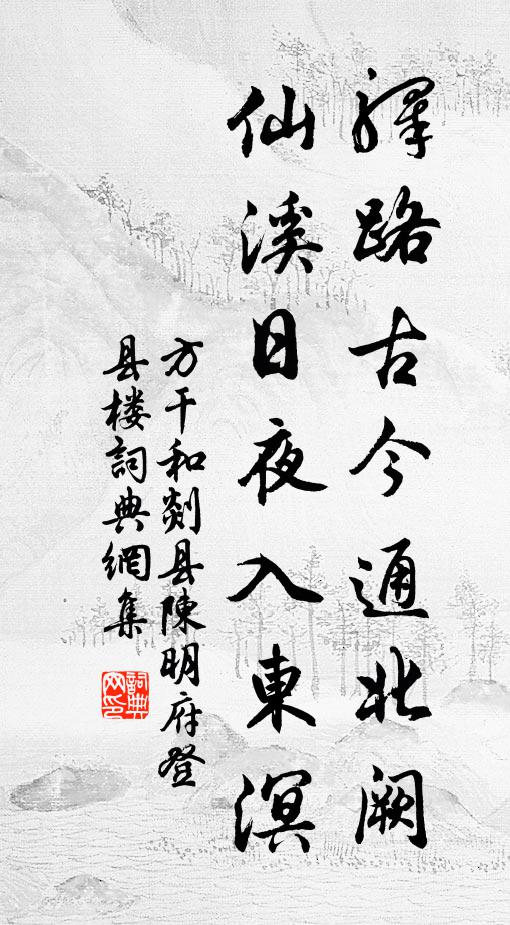 驛路古今通北阙
仙溪日夜入東溟
方干和剡县陳明府登
县楼詞典網集
詞典
网印